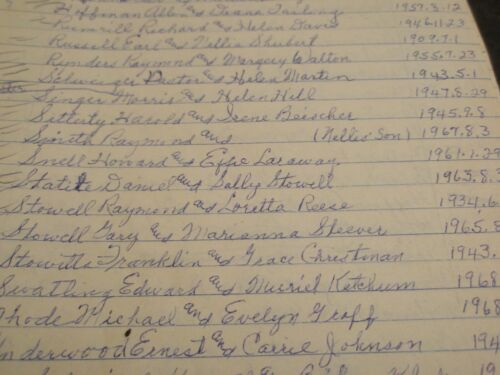 Hoffman Albe and Diana Tarling 1957.8.12
Rumrill Richard and Helen Davis 1946.11.23
Russell Earl and Nellie Shubert 1909.7.1
Rynders Raymond and Margery Walton 1955.7.23
Schweiger Pastor and Helen Martin 1943.5.1
Singer Morris and Helen Hill 1947.8.29
Sitterly Harold and Irene Beischer 1945.9.8
Smith Raymond and (Nellis' Son) 1967.8.3
Snell Howard and Effie Laraway 1961.1.29
Daniel and Sally Stowell 1963.8.3
Stowell Raymond and Loretta Reese 1934.6.
Stowell Gary and Marianna Sheever 1965.8
Stowitts Franklin and Grace Christman 1943.
Swatling Edward and Muriel Ketchum 1968
hode Michael and Evelyn Groff 1968
nderwood Ernest and Carrie Johnson 194